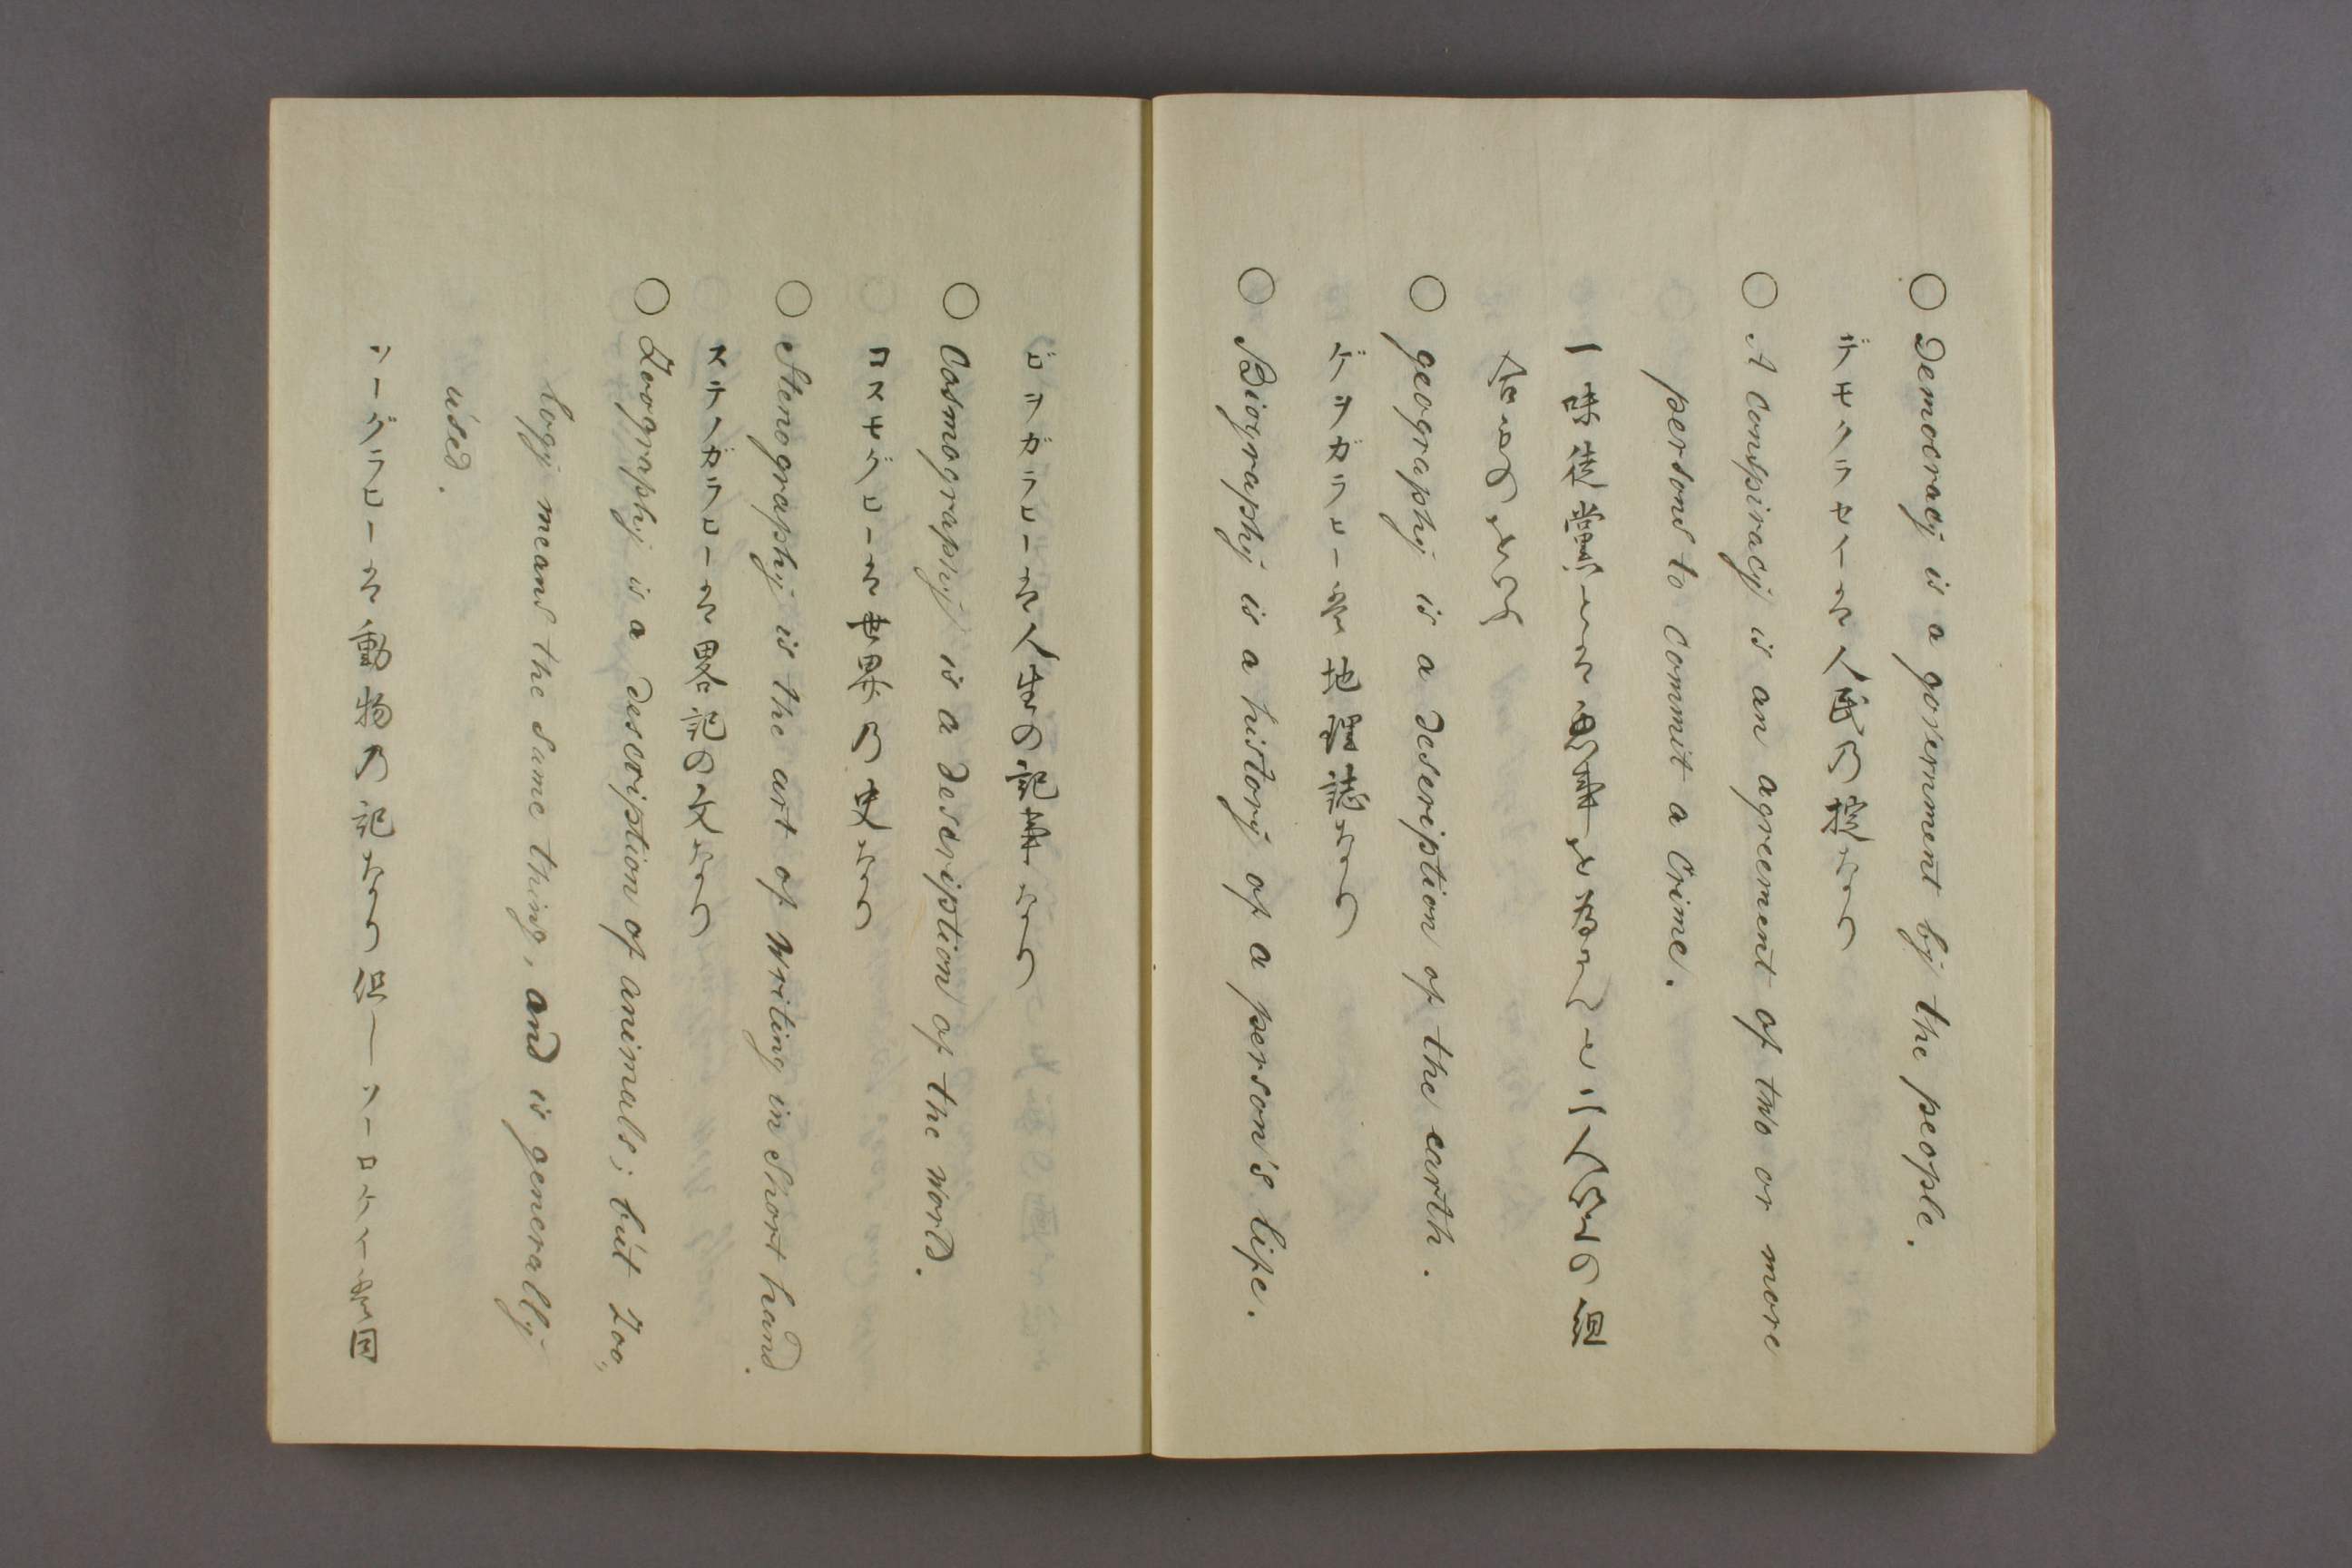 ○ Democracy is a government by the people.
デモクラセイハ人民乃掟なり
○ A Conspiracy is an agreement of two or more
persons to Commit a Crime.
一味徒黨といふハ悪事を為さんと二人以上の組
合ゐのよし
○ geography is a description of the earth.
ゲヲガラヒーハ地理誌なり
○ Biography is a history of a person's life.
ビヲガラヒーハ人世の記事なり
○ Cosmography is a description of the world.
コスモグヒーハ世界乃史なり
○ Stenography is the art of writing in Short hand.
ステノガラヒーハ畧記の文なり
○ Zoography is a description of animals; but Zoo,,
logy means the same thing, and is generally
used.
ソーグラヒーハ動物乃記なり但しソーロケイも同